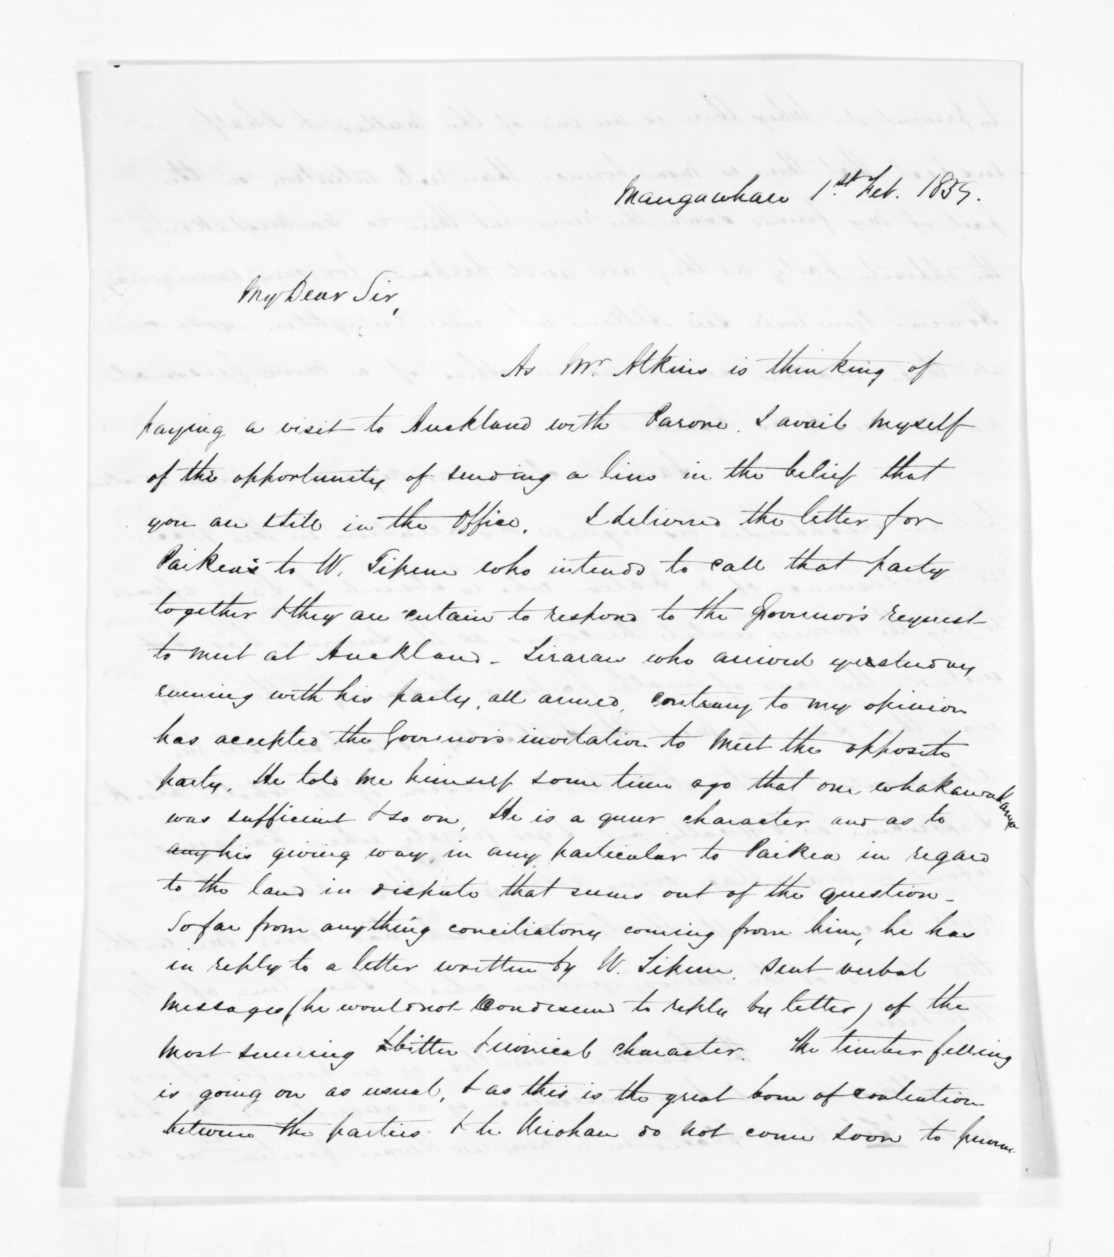 Mangawhare 1st Feb. 1859.
My Dear Sir,
As Mr Atkins is thinking of
paying a visit to Auckland with Parore. I avail myself
of the opportunity of sending a line in the belief that
you are still in the Office. I delivered the letter for
Paikea's to W. Tipene who intends to call that party
together & they are certain to respond to the Governor's request
to meet at Auckland - Tirarau who arrived yesterday
evening with his party, all armed, contrary to my opinion
has accepted the Governor's invitation to meet the opposite
party. He told me himself some time ago that one whakawakanga
was sufficient & so on. He is a queer character and as to
any his giving way, in any particular to Paikea in regard
to the land in dispute that seems out of the question -
So far from anything conciliatory coming from him, he has
in reply to a letter written by W. Tipene, sent verbal
messages (he would not condescend to reply by letter) of the
most sneering & bitter & ironical character. The timber felling
is going on as usual, & as this is the great bone of contention
between the parties. & the do not come soon to